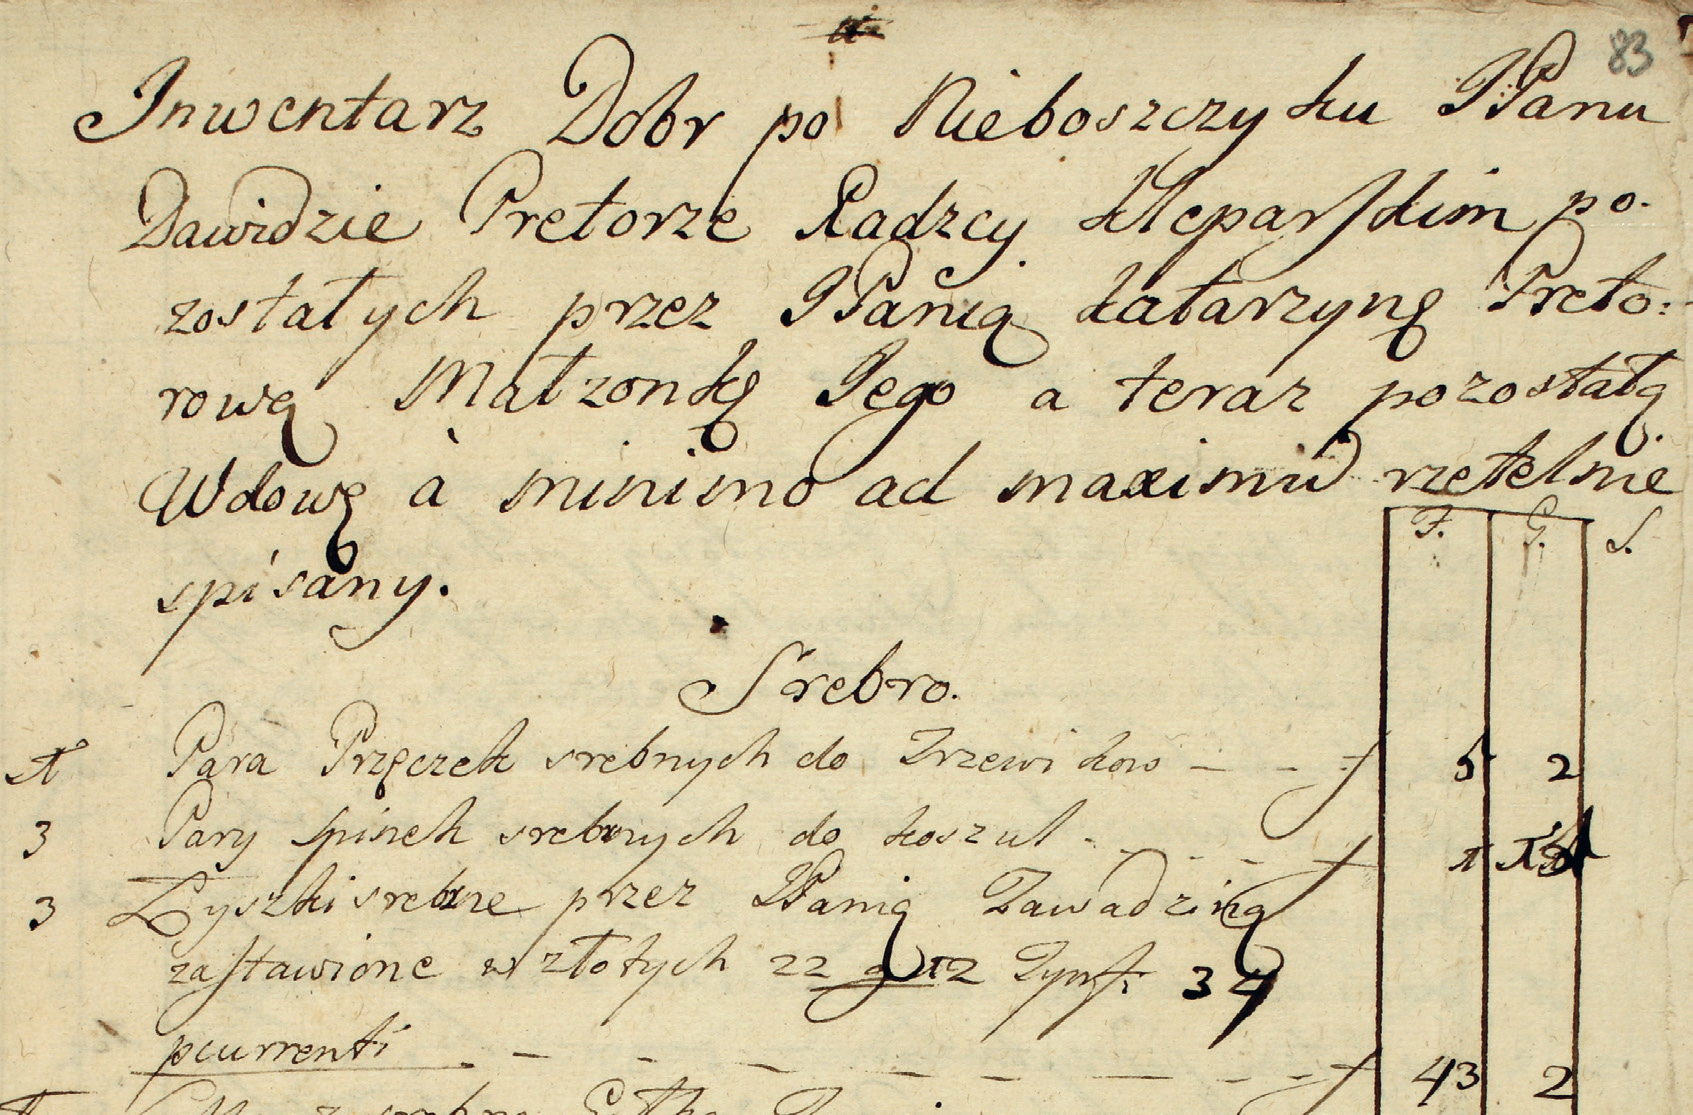 83
Inwentarz Dobr po Nieboszczyku JPanu
Dawidzie Pretorze Radzcy Kleparskim po-
zostałych przez JPanią Katarzynę Preto:
rową Małzonkę Jego a teraz pozostałą
Wdowę à minimo ad maximu rzetelnie
spisany.
F. G. S.
Srebro.
1 Para Przęczek srebnych do Trzewikow - - - 5 2
3 Pary spinek srebrnych do koszul - - - - 1
3 Łyszki srebne przez JPanią Zawadzką
zastawione w złotych 22 g 12 Tynf: 34
pcurrenti - - - - - - - - 43 2